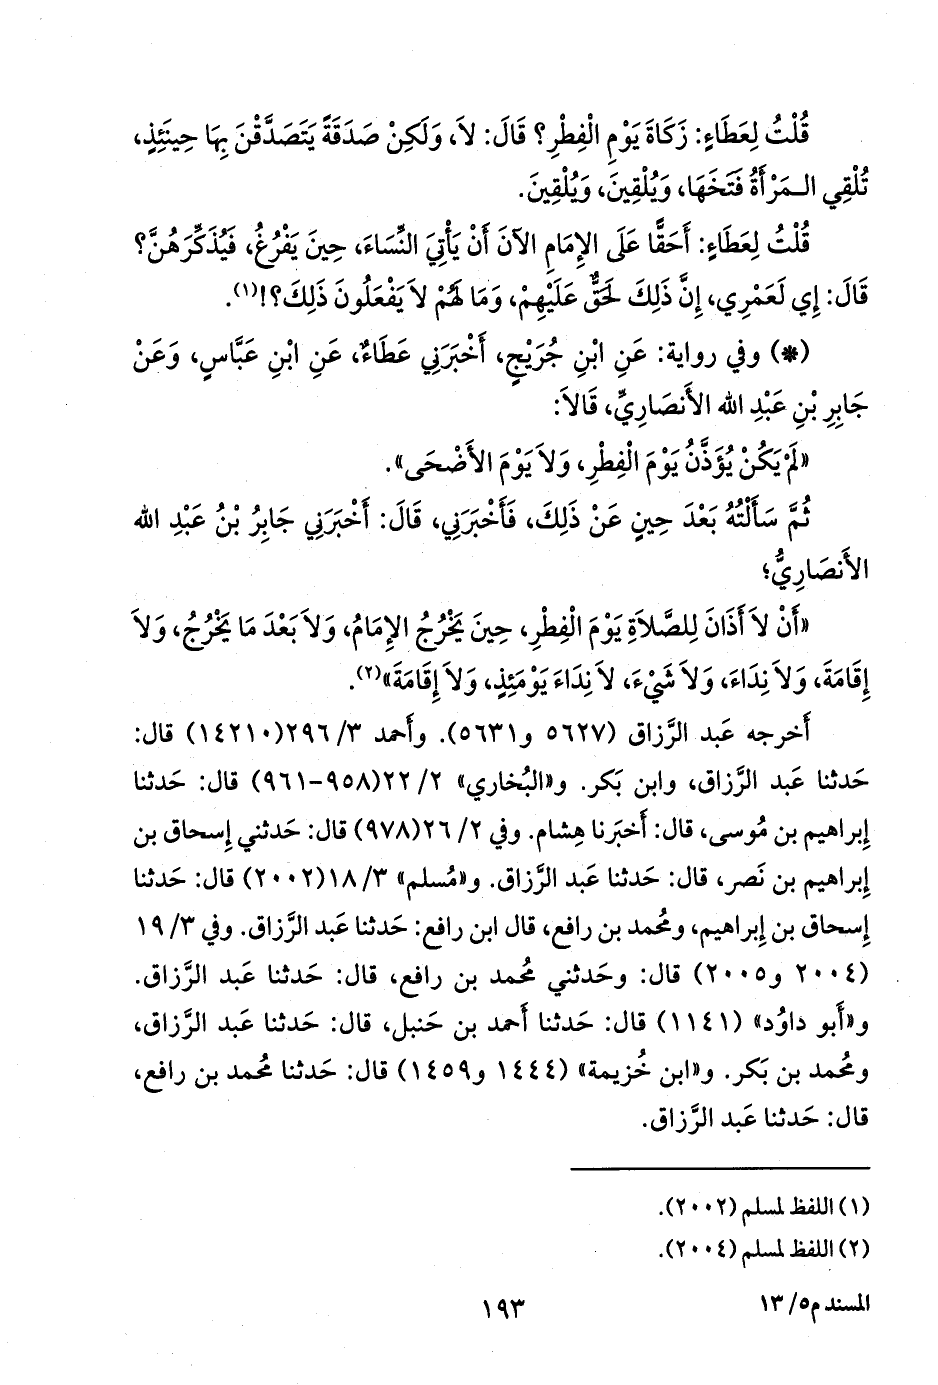 قُلْتُ لِعَطَاءٍ: زَكَاةَ يَوْمِ الْفِطْرِ؟ قَالَ: لاَ، وَلَكِنْ صَدَقَةً يَتَصَدَّقْنَ بِهَا حِينَئِذٍ،
تُلْقِي الـمَرْأَةُ فَتَخَهَا، وَيُلْقِينَ، وَيُلْقِينَ.
قُلْتُ لِعَطَاءٍ: أَحَقًّا عَلَى الإِمَامِ الآنَ أَنْ يَأْتِيَ النِّسَاءَ، حِينَ يَفْرُغُ، فَيُذَكِّرَهُنَّ؟
قَالَ: إِي لَعَمْرِي، إِنَّ ذَلِكَ لَحَقٌّ عَلَيْهِمْ، وَمَا لَهُمْ لاَ يَفْعَلُونَ ذَلِكَ؟!(١).
(*) وفي رواية: عَنِ ابْنِ جُرَيْجٍ، أَخْبَرَنِي عَطَاءٌ، عَنِ ابْنِ عَبَّاسٍ، وَعَنْ
جَابِرِ بْنِ عَبْدِ الله الأَنصَارِيِّ، قَالاَ:
«لَمْ يَكُنْ يُؤَذَّنُ يَوْمَ الْفِطْرِ، وَلاَ يَوْمَ الأَضْحَى».
ثُمَّ سَأَلْتُهُ بَعْدَ حِينٍ عَنْ ذَلِكَ، فَأَخْبَرَنِي، قَالَ: أَخْبَرَنِي جَابِرُ بْنُ عَبْدِ الله
الأَنصَارِيُّ؛
«أَنْ لاَ أَذَانَ لِلصَّلاَةِ يَوْمَ الْفِطْرِ، حِينَ يَخْرُجُ الإِمَامُ، وَلاَ بَعْدَ مَا يَخْرُجُ، وَلاَ
إِقَامَةَ، وَلاَ نِدَاءَ، وَلاَ شَيْءَ، لاَ نِدَاءَ يَوْمَئِذٍ، وَلاَ إِقَامَةَ»(٢).
أَخرجه عَبد الرَّزاق (٥٦٢٧ و٥٦٣١). وأَحمد ٣/ ٢٩٦(١٤٢١٠) قال:
حَدثنا عَبد الرَّزاق، وابن بَكر. و«البُخاري» ٢/ ٢٢(٩٥٨-٩٦١) قال: حَدثنا
إِبراهيم بن مُوسى، قال: أَخبَرنا هِشام. وفي ٢/ ٢٦(٩٧٨) قال: حَدثني إِسحاق بن
إِبراهيم بن نَصر، قال: حَدثنا عَبد الرَّزاق. و«مُسلم» ٣/ ١٨(٢٠٠٢) قال: حَدثنا
إِسحاق بن إِبراهيم، ومُحمد بن رافع، قال ابن رافع: حَدثنا عَبد الرَّزاق. وفي ٣/ ١٩
(٢٠٠٤ و٢٠٠٥) قال: وحَدثني مُحمد بن رافع، قال: حَدثنا عَبد الرَّزاق.
و«أَبو داوُد» (١١٤١) قال: حَدثنا أَحمد بن حَنبل، قال: حَدثنا عَبد الرَّزاق،
ومُحمد بن بَكر. و«ابن خُزيمة» (١٤٤٤ و١٤٥٩) قال: حَدثنا مُحمد بن رافع،
قال: حَدثنا عَبد الرَّزاق.
(١) اللفظ لمسلم (٢٠٠٢).
(٢) اللفظ لمسلم (٢٠٠٤).
المسند م٥/ ١٣
١٩٣